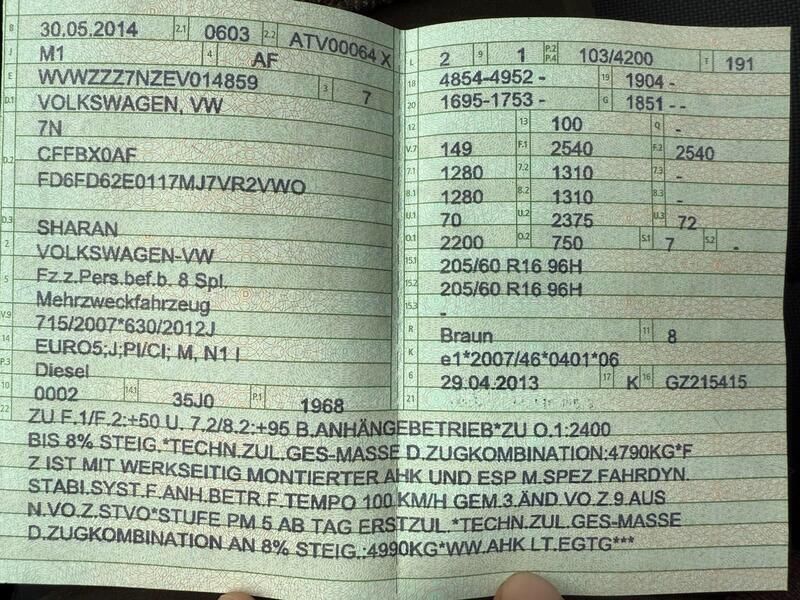 B 30.05.2014 2.1 0603 2.2 ATV00064 X
J M1 4 AF
E WVWZZZ7NZEV014859 3 7
D.1 VOLKSWAGEN, VW
7N
D.2 CFFBX0AF
FD6FD62E0117MJ7VR2VWO
D.3 SHARAN
2 VOLKSWAGEN-VW
5 Fz.z.Pers.bef.b. 8 Spl.
Mehrzweckfahrzeug
V.9 715/2007*630/2012J
14 EURO5;J;PI/CI; M, N1 I
P.3 Diesel
10 0002 14.1 35J0 P.1 1968
L 2 9 1 P.2 P.4 103/4200 T 191
18 4854-4952 - 19 1904 -
20 1695-1753 - G 1851 - -
12 13 100 Q -
V.7 149 F.1 2540 F.2 2540
7.1 1280 7.2 1310 7.3 -
8.1 1280 8.2 1310 8.3 -
U.1 70 U.2 2375 U.3 72
O.1 2200 O.2 750 S.1 7 S.2 -
15.1 205/60 R16 96H
15.2 205/60 R16 96H
15.3 -
R Braun 11 8
K e1*2007/46*0401*06
6 29.04.2013 17 K 16 GZ215415
21
22 ZU F.1/F.2:+50 U. 7.2/8.2:+95 B.ANHÄNGEBETRIEB*ZU O.1:2400
BIS 8% STEIG.*TECHN.ZUL.GES-MASSE D.ZUGKOMBINATION:4790KG*F
Z IST MIT WERKSEITIG MONTIERTER AHK UND ESP M.SPEZ.FAHRDYN.
STABI.SYST.F.ANH.BETR.F.TEMPO 100 KM/H GEM.3.ÄND VO.Z.9 AUS
N.VO.Z.STVO*STUFE PM 5 AB TAG ERSTZUL.*TECHN.ZUL.GES-MASSE
D.ZUGKOMBINATION AN 8% STEIG.:4990KG*WW.AHK LT.EGTG***